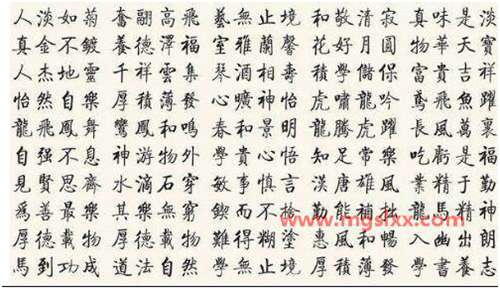 人淡如菊 奮翮高飛 藝無止境 和敬清寂 真味是淡
真金不鍍 養德澤福 室雅蘭馨 花好月圓 物華天寶
人杰地靈 千祥雲集 琴 相 富貴吉祥
怡然自樂 厚積薄發 心曠神怡 虎嘯龍吟 鳶飛魚躍
龍飛鳳舞 鸞鳳和鳴 春和景明 龍騰虎躍 長風萬裏
自强不息 神游物外 學貴心悟 知足常樂 吃虧是福
見賢思齊 水滴石穿 敏事慎言 漢唐雄風 業精于勤
爲善最樂 其樂無窮 鍥而不捨 勤能補拙 龍馬精神
厚德載物 厚德載物 難得糊塗 惠風和暢
馬到功成 道法自然 學無止境 厚積薄發 學書養志
www.mgslxx.com